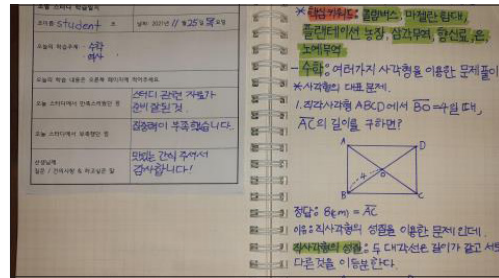 조이름: student 조
날짜: 2021년 11월 25일 목요일
오늘의 학습주제: 수학
역사
오늘의 학습 내용은 오른쪽 페이지에 적어주세요
오늘 스터디에서 만족스러웠던 점
스터디 관련 자료가
준비 잘된 것.
오늘 스터디에서 부족했던 점
집중력이 부족했습니다.
선생님께
질문 / 건의사항 & 하고싶은 말
맛있는 간식 주셔서
감사합니다!
콜럼버스, 마젤란 함대,
플랜테이션 농장, 삼각무역, 향신료, 은,
노예무역
- 수학: 여러가지 사각형을 이용한 문제풀이
* 사각형의 대표 문제.
1. 직각사각형 ABCD에서 BO=4일 때,
AC의 길이를 구하면?
A
D
4
O
B
C
정답: 8(cm) = AC
이유: 직사각형의 성질을 이용한 문제인데,
직사각형의 성질: 두 대각선은 길이가 같고 서로
다른것을 이등분한다.